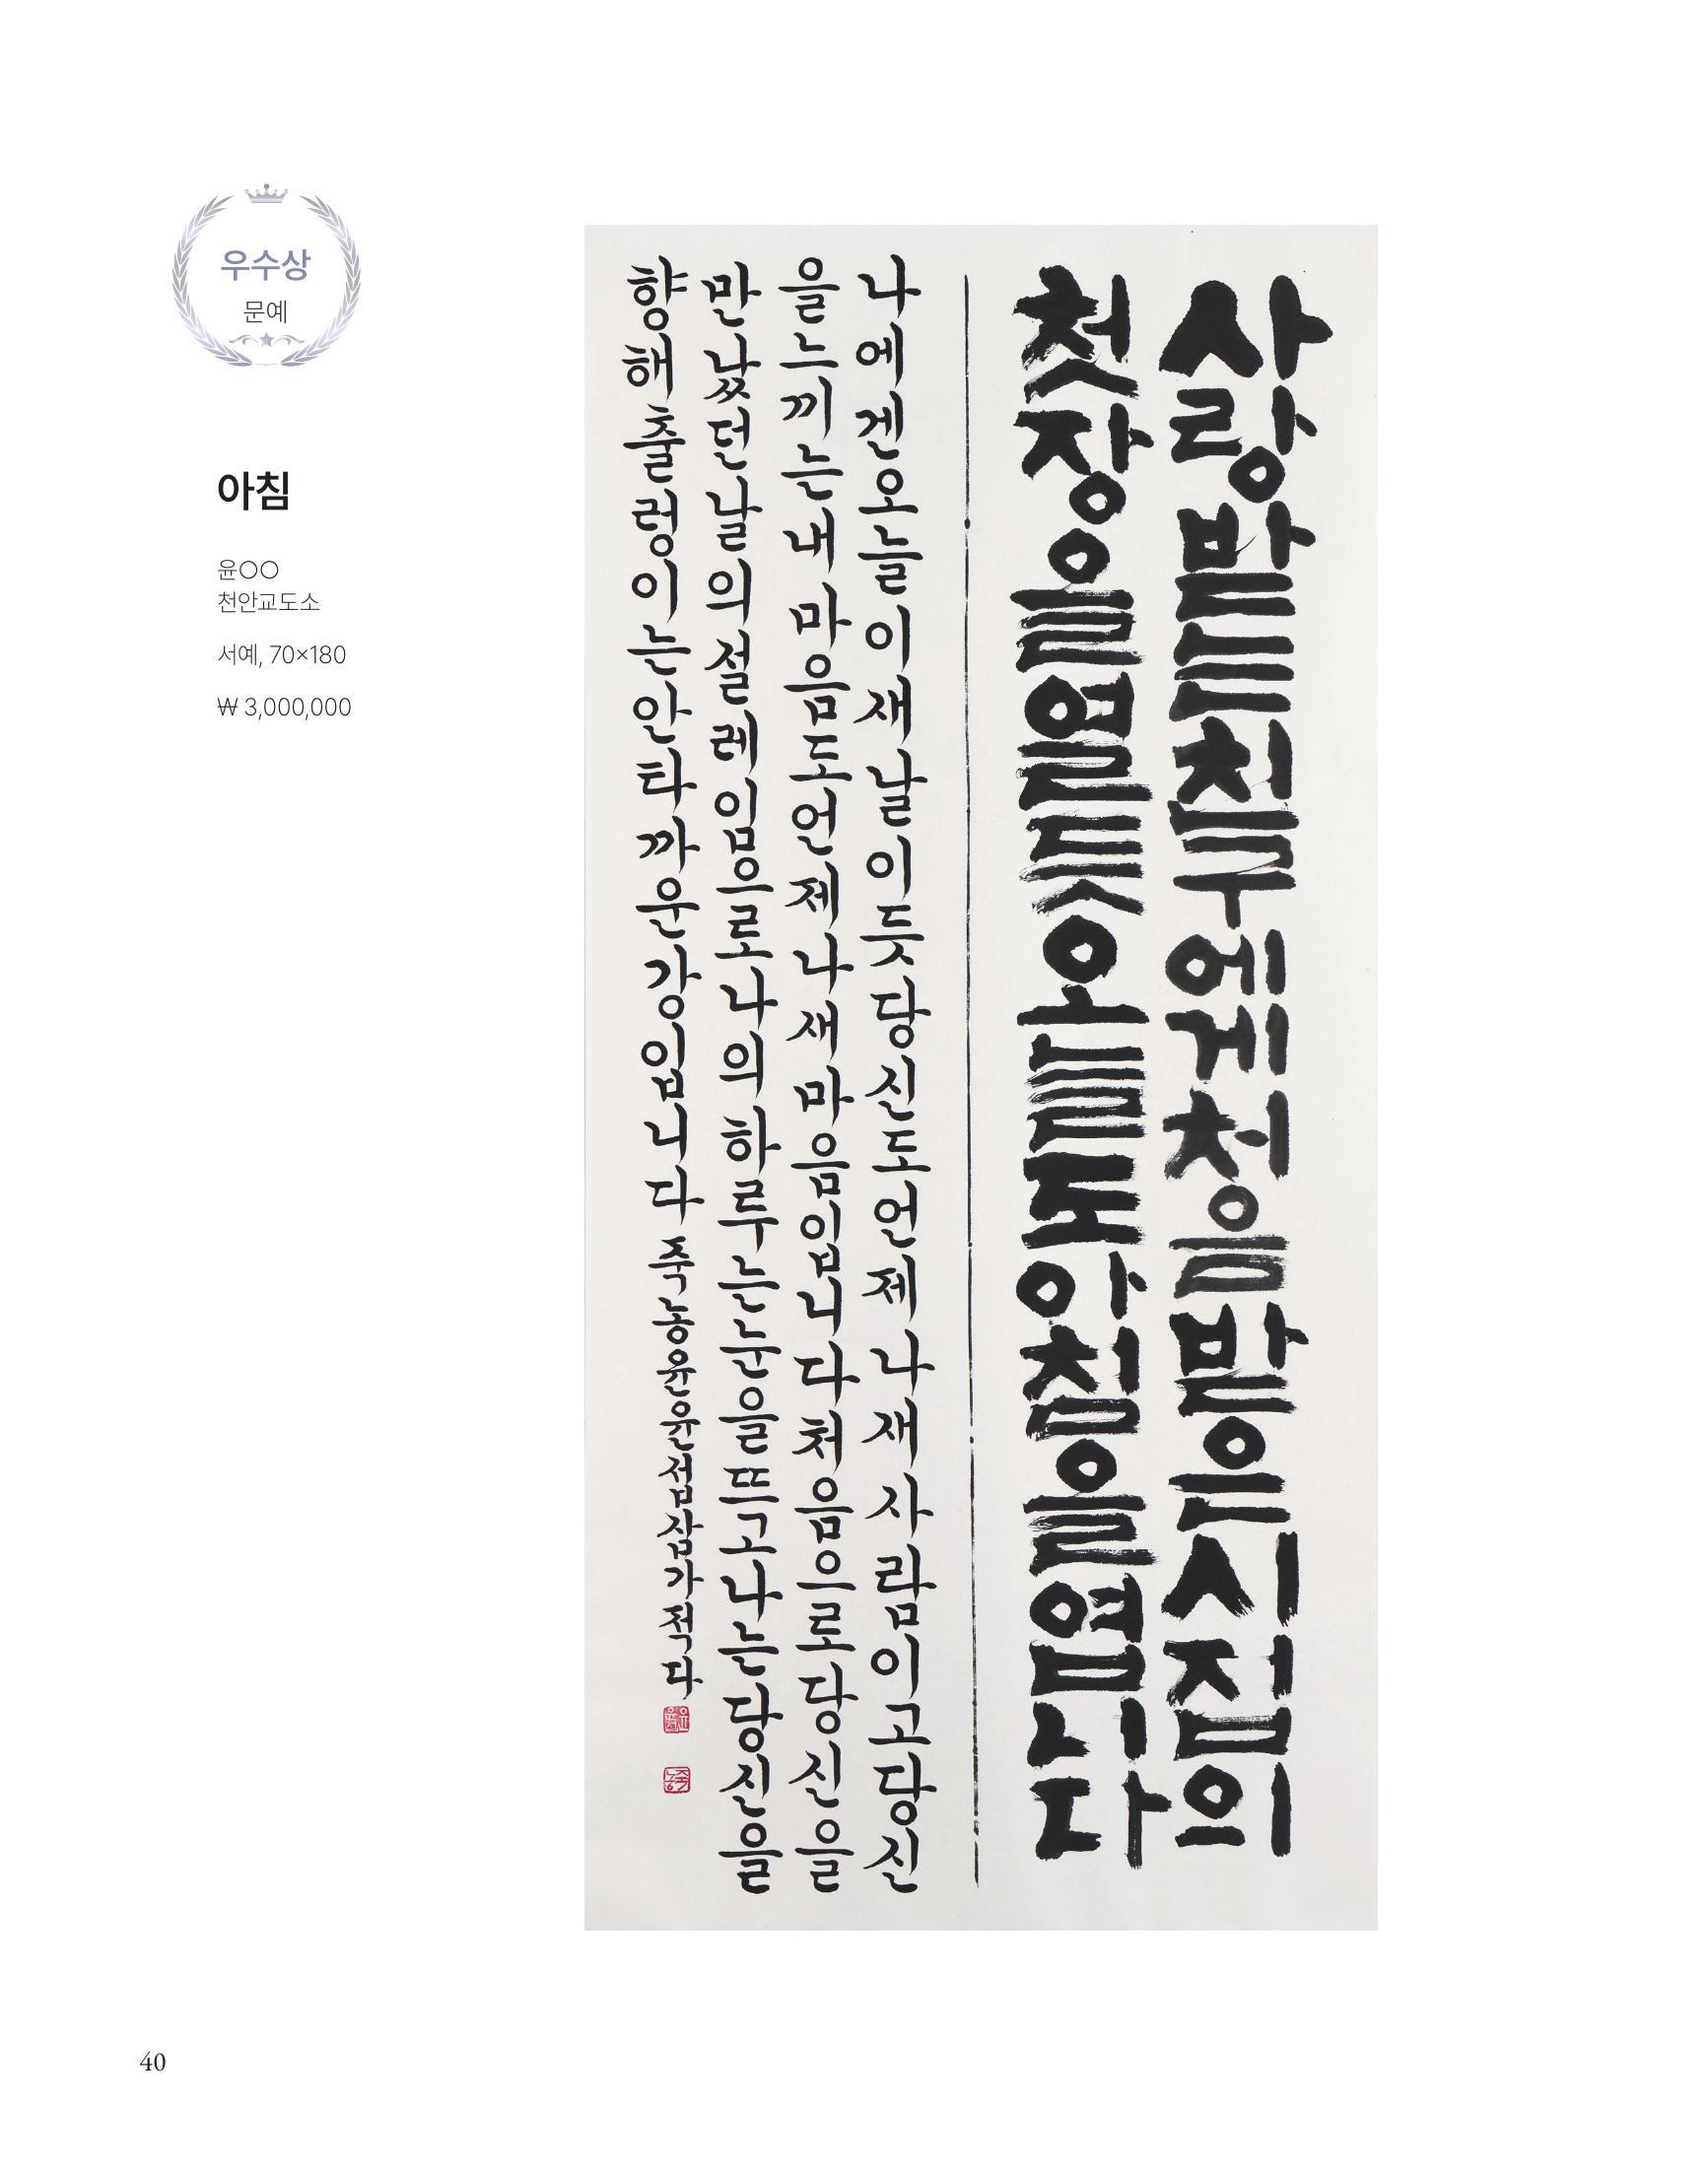 우수상
문예
아침
윤○○
천안교도소
서예, 70×180
₩ 3,000,000
사랑받는친구에게처음받은시집의
첫장을열듯오늘도아침을엽니다
나에겐오늘이새날이듯당신도언제나새사람이고당신
을느끼는내마음도언제나새마음입니다처음으로당신을
만났던날의설레임으로나의하루는눈을뜨고나는당신을
향해출렁이는안타까운강입니다 죽농윤윤섭삽가적다
40